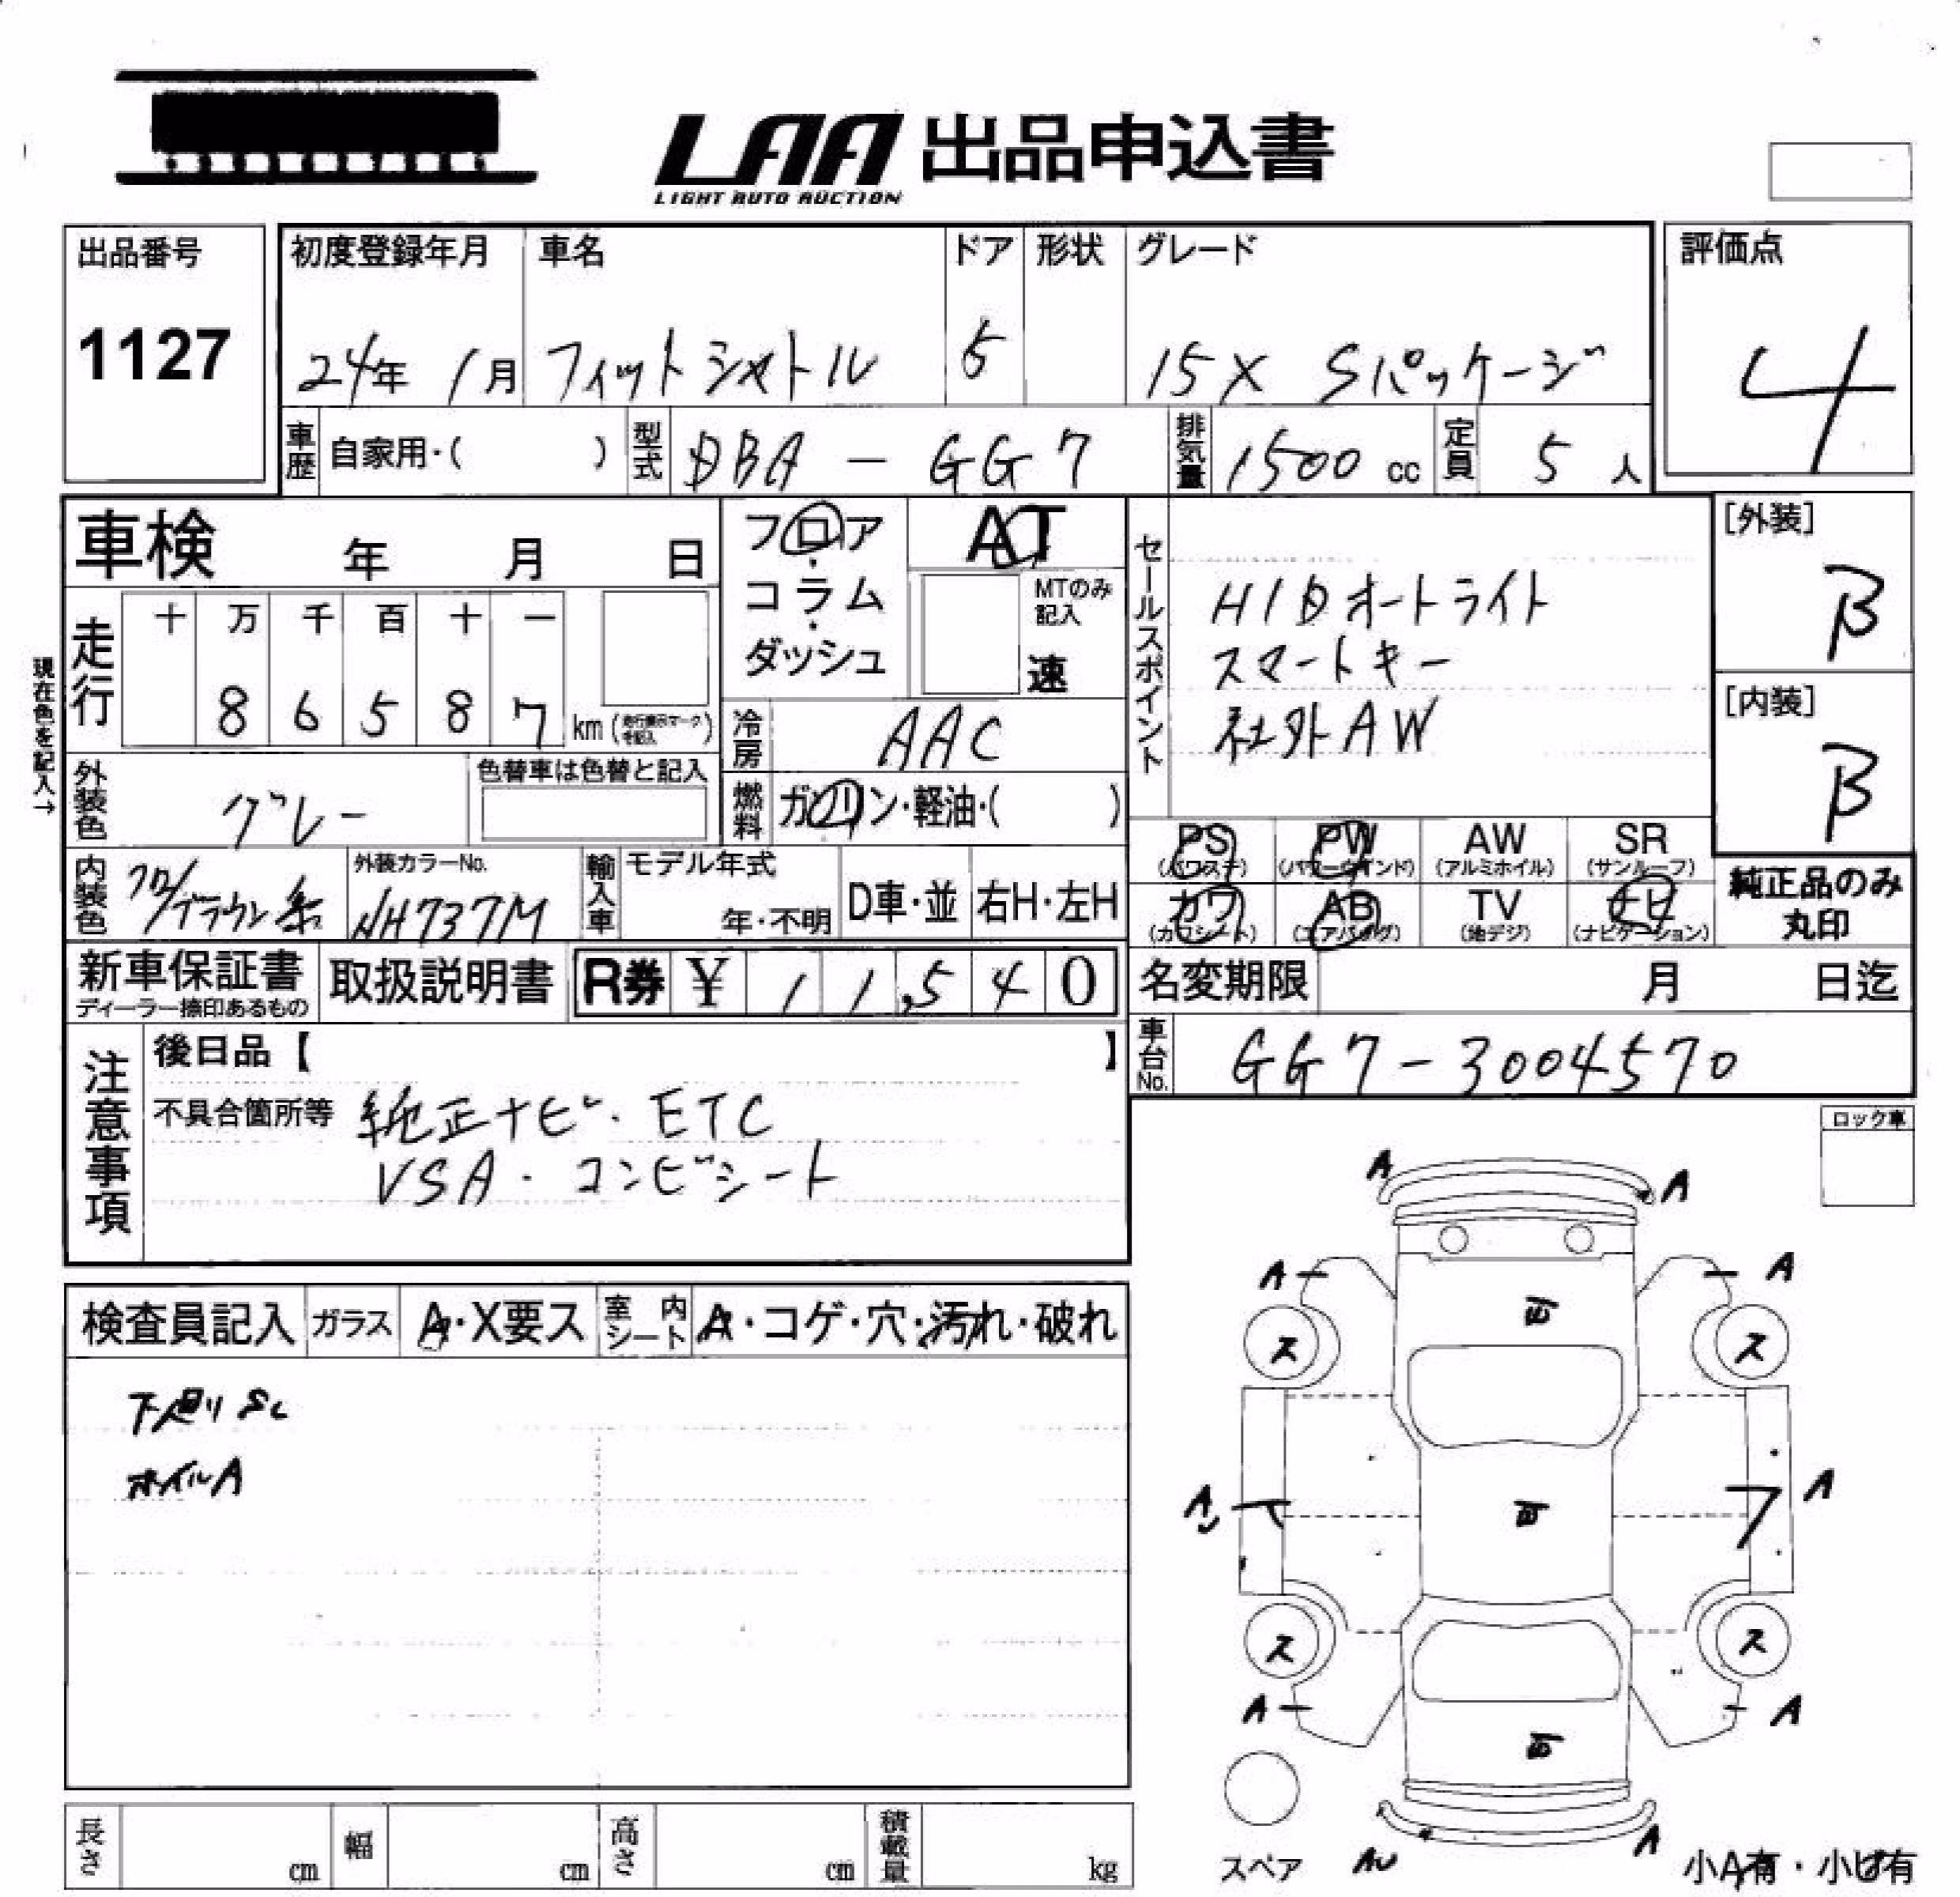 LAA 出品申込書
LIGHT AUTO AUCTION
出品番号
1127
初度登録年月
24年 1月
車名
フィットシャトル
ドア
5
形状
グレード
15X Sパッケージ
評価点
4
車歴 自家用・( )
型式 DBA - GG7
排気量 1500 cc
定員 5 人
車検 年 月 日
フロア・コラム・ダッシュ
AT
MTのみ記入
速
セールスポイント
HIDオートライト
スマートキー
社外AW
[外装]
B
[内装]
B
現在色を記入→
走行
十 万 千 百 十 一
8 6 5 8 7 km
冷房 AAC
外装色 グレー
色替車は色替と記入
燃料 ガソリン・軽油・( )
PS (パワステ)
PW (パワーウインド)
AW (アルミホイル)
SR (サンルーフ)
カワ (カワシート)
AB (エアバッグ)
TV (地デジ)
ナビ (ナビゲーション)
純正品のみ丸印
内装色 クロ/ブラウン系
外装カラーNo.
NH737M
輸入車
モデル年式
年・不明
D車・並
右H・左H
新車保証書
ディーラー捺印あるもの
取扱説明書
R券 ¥ 1 1,5 4 0
名変期限 月 日迄
車台No. GG7-3004570
注意事項
後日品【 】
不具合箇所等 純正ナビ・ETC
VSA・コンビシート
ロック車
検査員記入
ガラス A・X要ス
室内シート A・コゲ・穴・汚れ・破れ
下廻りSL
ホイルA
A A
A A
ス ス
A A
ス ス
A A
スペア
AU
A
小A有・小ピ有
長さ cm
幅 cm
高さ cm
積載量 kg